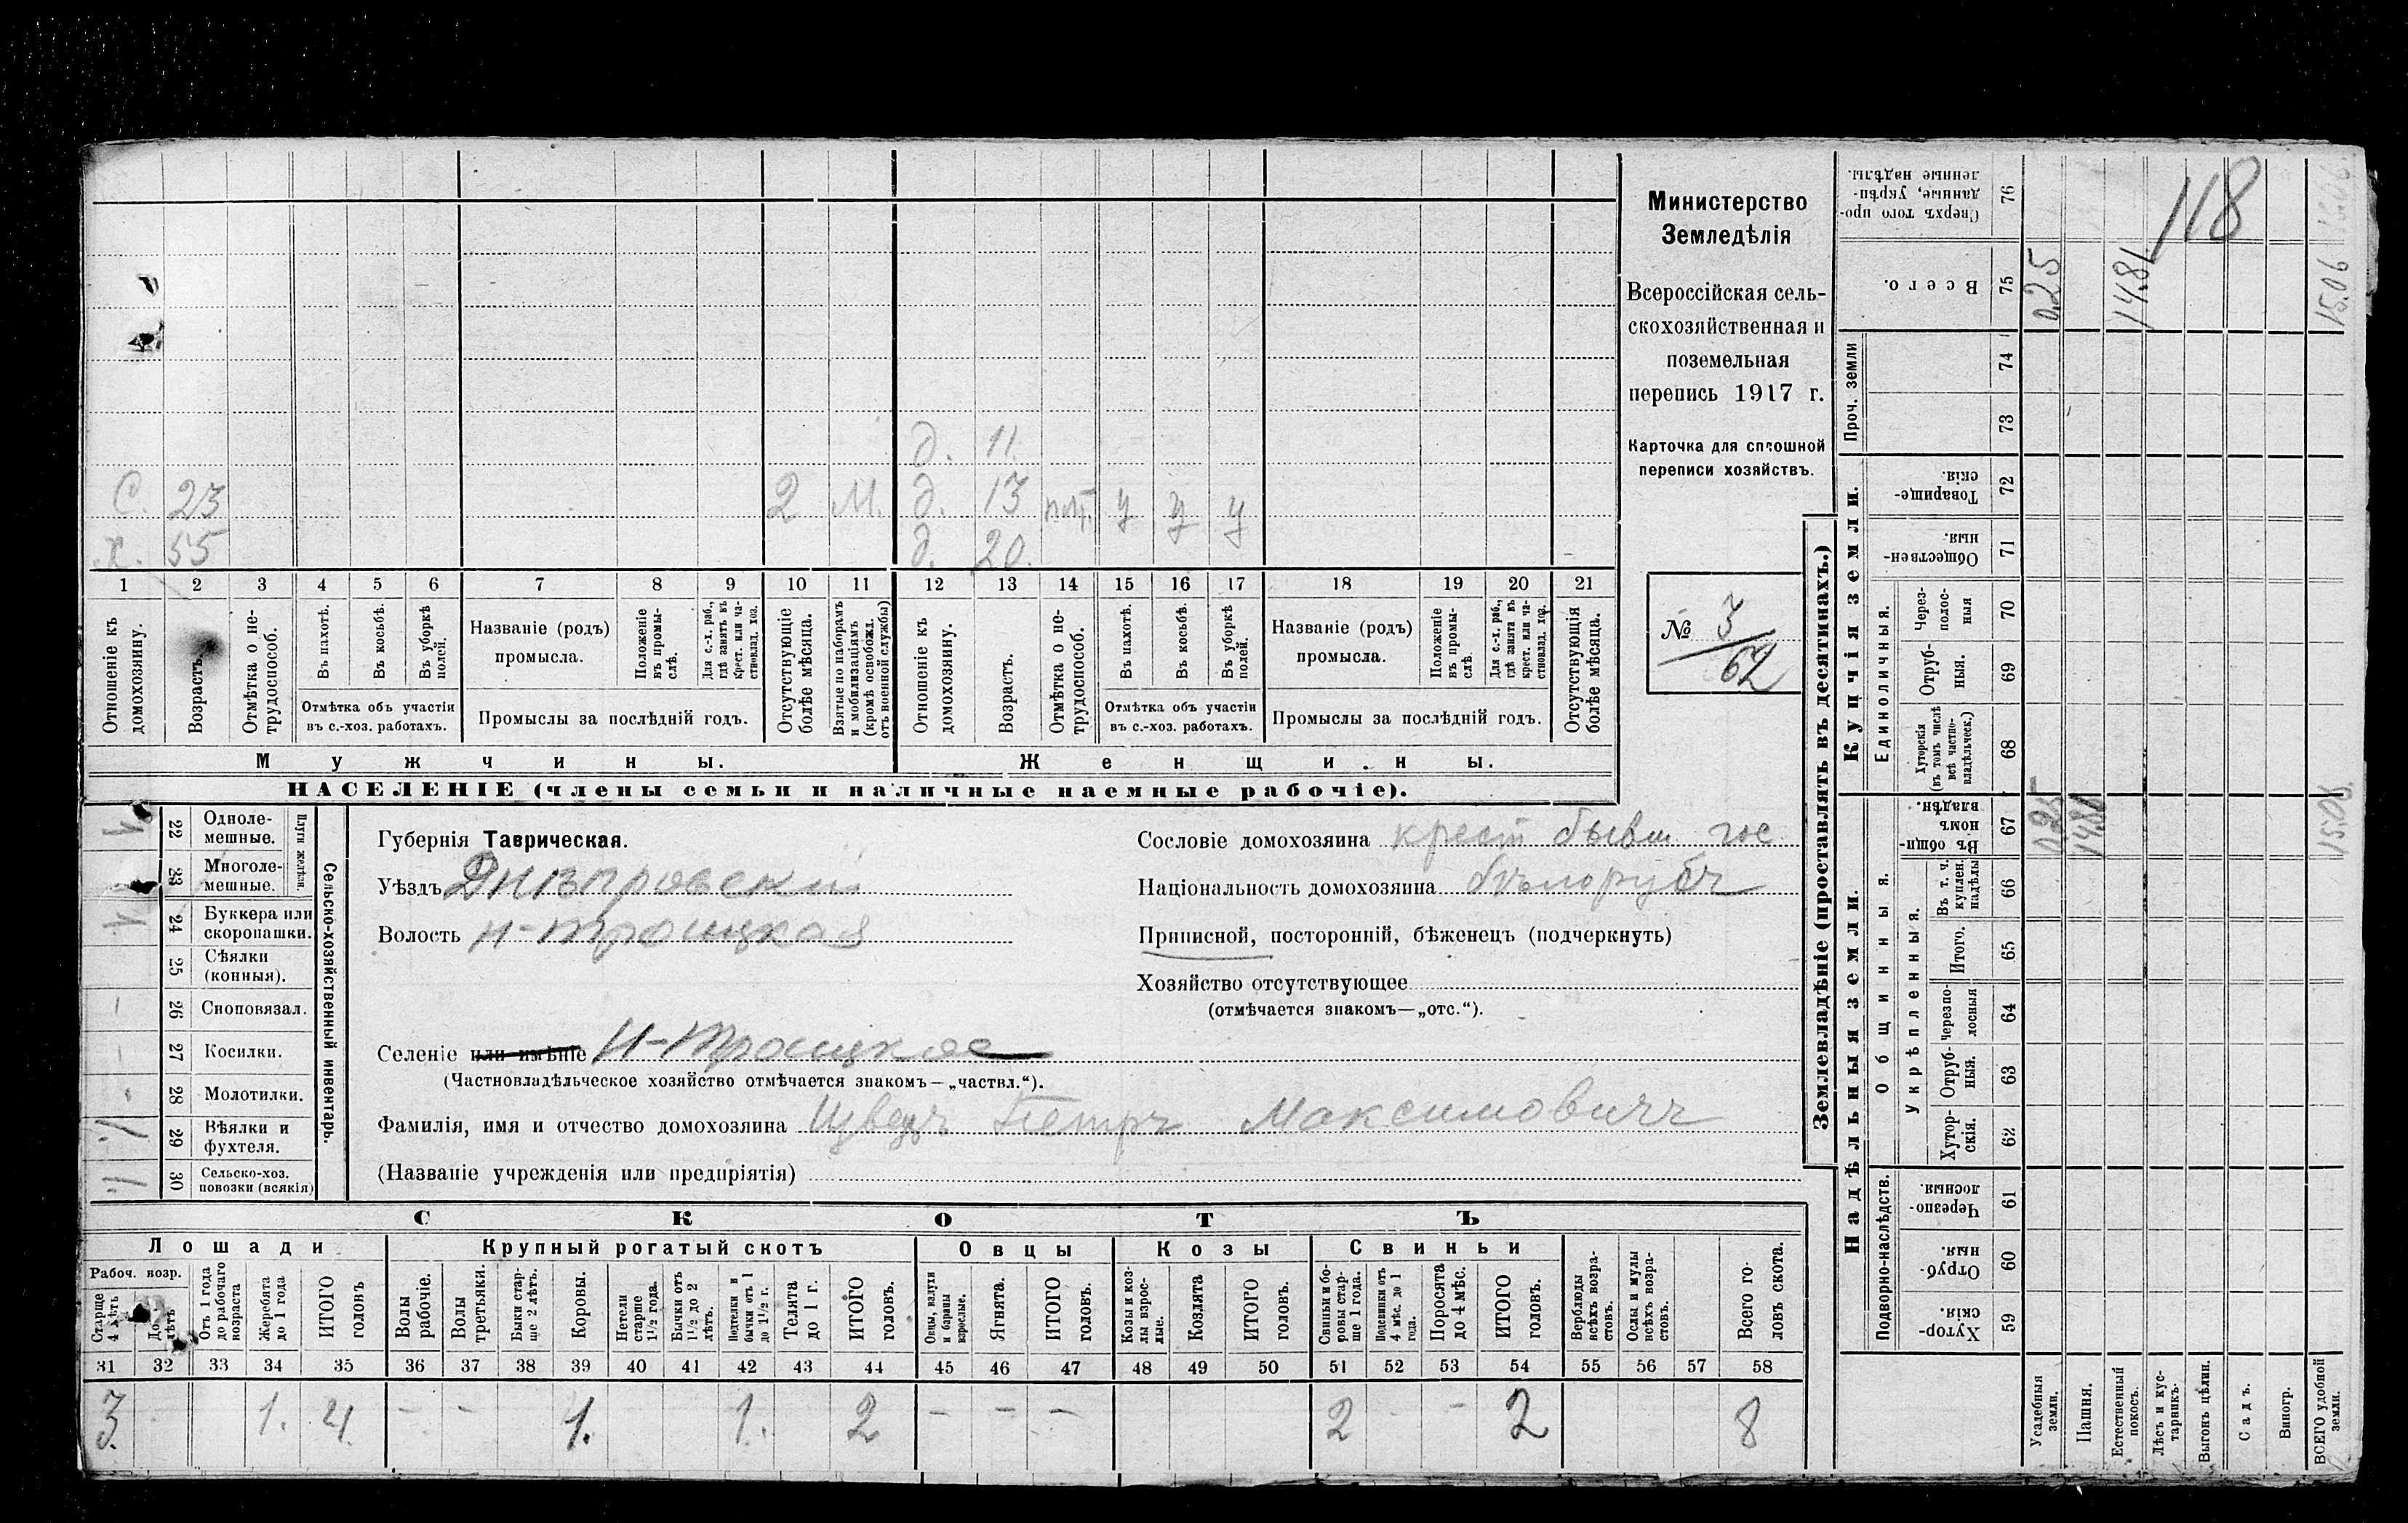 Министерство
Земледѣлія
Всероссійская сель-
скохозяйственная и
поземельная
перепись 1917 г.
Карточка для сплошной
переписи хозяйствъ.
№ 3/62
118
д. 11.
С. 23 2 М. д. 13 у у у
х. 55 д. 20.
1 2 3 4 5 6 7 8 9 10 11 12 13 14 15 16 17 18 19 20 21
Отношеніе къ домохозяину.
Возрастъ.
Отмѣтка о не-трудоспособ.
Въ пахотѣ.
Въ косьбѣ.
Въ уборкѣ полей.
Отмѣтка объ участіи
въ с.-хоз. работахъ.
Названіе (родъ)
промысла.
Положеніе въ промы-слѣ.
Для с.-х. раб., гдѣ занятъ въ крест. или ча-стновлад. хоз.
Промыслы за послѣдній годъ.
Отсутствующіе болѣе мѣсяца.
Взятые по наборамъ и мобилизаціямъ (кромѣ освобожд. отъ военной службы)
Отношеніе къ домохозяину.
Возрастъ.
Отмѣтка о не-трудоспособ.
Въ пахотѣ.
Въ косьбѣ.
Въ уборкѣ полей.
Отмѣтка объ участіи
въ с.-хоз. работахъ.
Названіе (родъ)
промысла.
Положеніе въ промы-слѣ.
Для с.-х. раб., гдѣ занята въ крест. или ча-стновлад. хоз.
Промыслы за послѣдній годъ.
Отсутствующія болѣе мѣсяца.
Мужчины.
Женщины.
НАСЕЛЕНІЕ (члены семьи и наличные наемные рабочіе).
22 Одноле-мешные.
23 Многоле-мешные.
Плуги желѣзн.
24 Буккера или скоропашки.
25 Сѣялки (конныя).
26 Сноповязал.
27 Косилки.
28 Молотилки.
29 Вѣялки и фухтеля.
30 Сельско-хоз. повозки (всякія)
Сельско-хозяйственный инвентарь.
Губернія Таврическая.
Уѣздъ Днѣпровскій
Волость Н-Троицкая
Селеніе или имѣніе Н-Троицкое
(Частновладѣльческое хозяйство отмѣчается знакомъ—„частвл.“).
Фамилія, имя и отчество домохозяина Швецъ Петръ Максимовичъ
(Названіе учрежденія или предпріятія)
Сословіе домохозяина крест бывш гос
Національность домохозяина бѣлорусъ
Приписной, посторонній, бѣженецъ (подчеркнуть)
Хозяйство отсутствующее
(отмѣчается знакомъ—„отс.“).
СКОТЪ
Лошади
Крупный рогатый скотъ
Овцы
Козы
Свиньи
Рабоч. возр.
Старше 4 лѣтъ
До лѣтъ
Отъ 1 года до рабочаго возраста
Жеребята до 1 года
ИТОГО головъ
Волы рабочіе.
Волы третьяки.
Быки стар-ше 2 лѣтъ.
Коровы.
Нетели старше 1½ года.
Бычки отъ 1½ до 2 лѣтъ.
Подтелки и бычки отъ 1 до 1½ г.
Телята до 1 г.
ИТОГО головъ.
Овцы, валухи и бараны взрослые.
Ягнята.
ИТОГО головъ.
Козы и коз-лы взрос-лые.
Козлята
ИТОГО головъ.
Свиньи и бо-ровы стар-ше 1 года.
Подсвинки отъ 4 мѣс. до 1 года.
Поросята до 4 мѣс.
ИТОГО головъ.
Верблюды всѣхъ возра-стовъ.
Ослы и мулы всѣхъ возра-стовъ.
Всего го-ловъ скота.
31 32 33 34 35 36 37 38 39 40 41 42 43 44 45 46 47 48 49 50 51 52 53 54 55 56 57 58
3. 1. 4. - - 1. 1. 2 - - - 2 - - 2 8
Землевладѣніе (проставлять въ десятинахъ.)
Надѣльныя земли.
Купчія земли.
Проч. земли
Подворно-наслѣдств.
Общинныя.
Укрѣпленныя.
Единоличныя.
Хутор-скія. 59
Отруб-ныя. 60
Черезпо-лосныя. 61
Хутор-скія. 62
Отруб-ныя. 63
Черезпо-лосныя 64
Итого. 65
Въ т. ч. куплен. надѣлы 66
Въ общин-номъ владѣн. 67
Хуторскія (въ томъ числѣ всѣ частно-владѣльческ.) 68
Отруб-ныя. 69
Через-полос-ныя 70
Обществен-ныя. 71
Товарище-скія 72
73
74
Всего. 75
Сверхъ того про-данные, укрѣп-ленные надѣлы. 76
Усадебныя земли. 0.25 0.25
Пашня. 14.81
Естественный покосъ. 14.81
Лѣсъ и кус-тарникъ.
Выгонъ цѣлин.
Садъ.
Виногр.
ВСЕГО удобной земли. 15.06